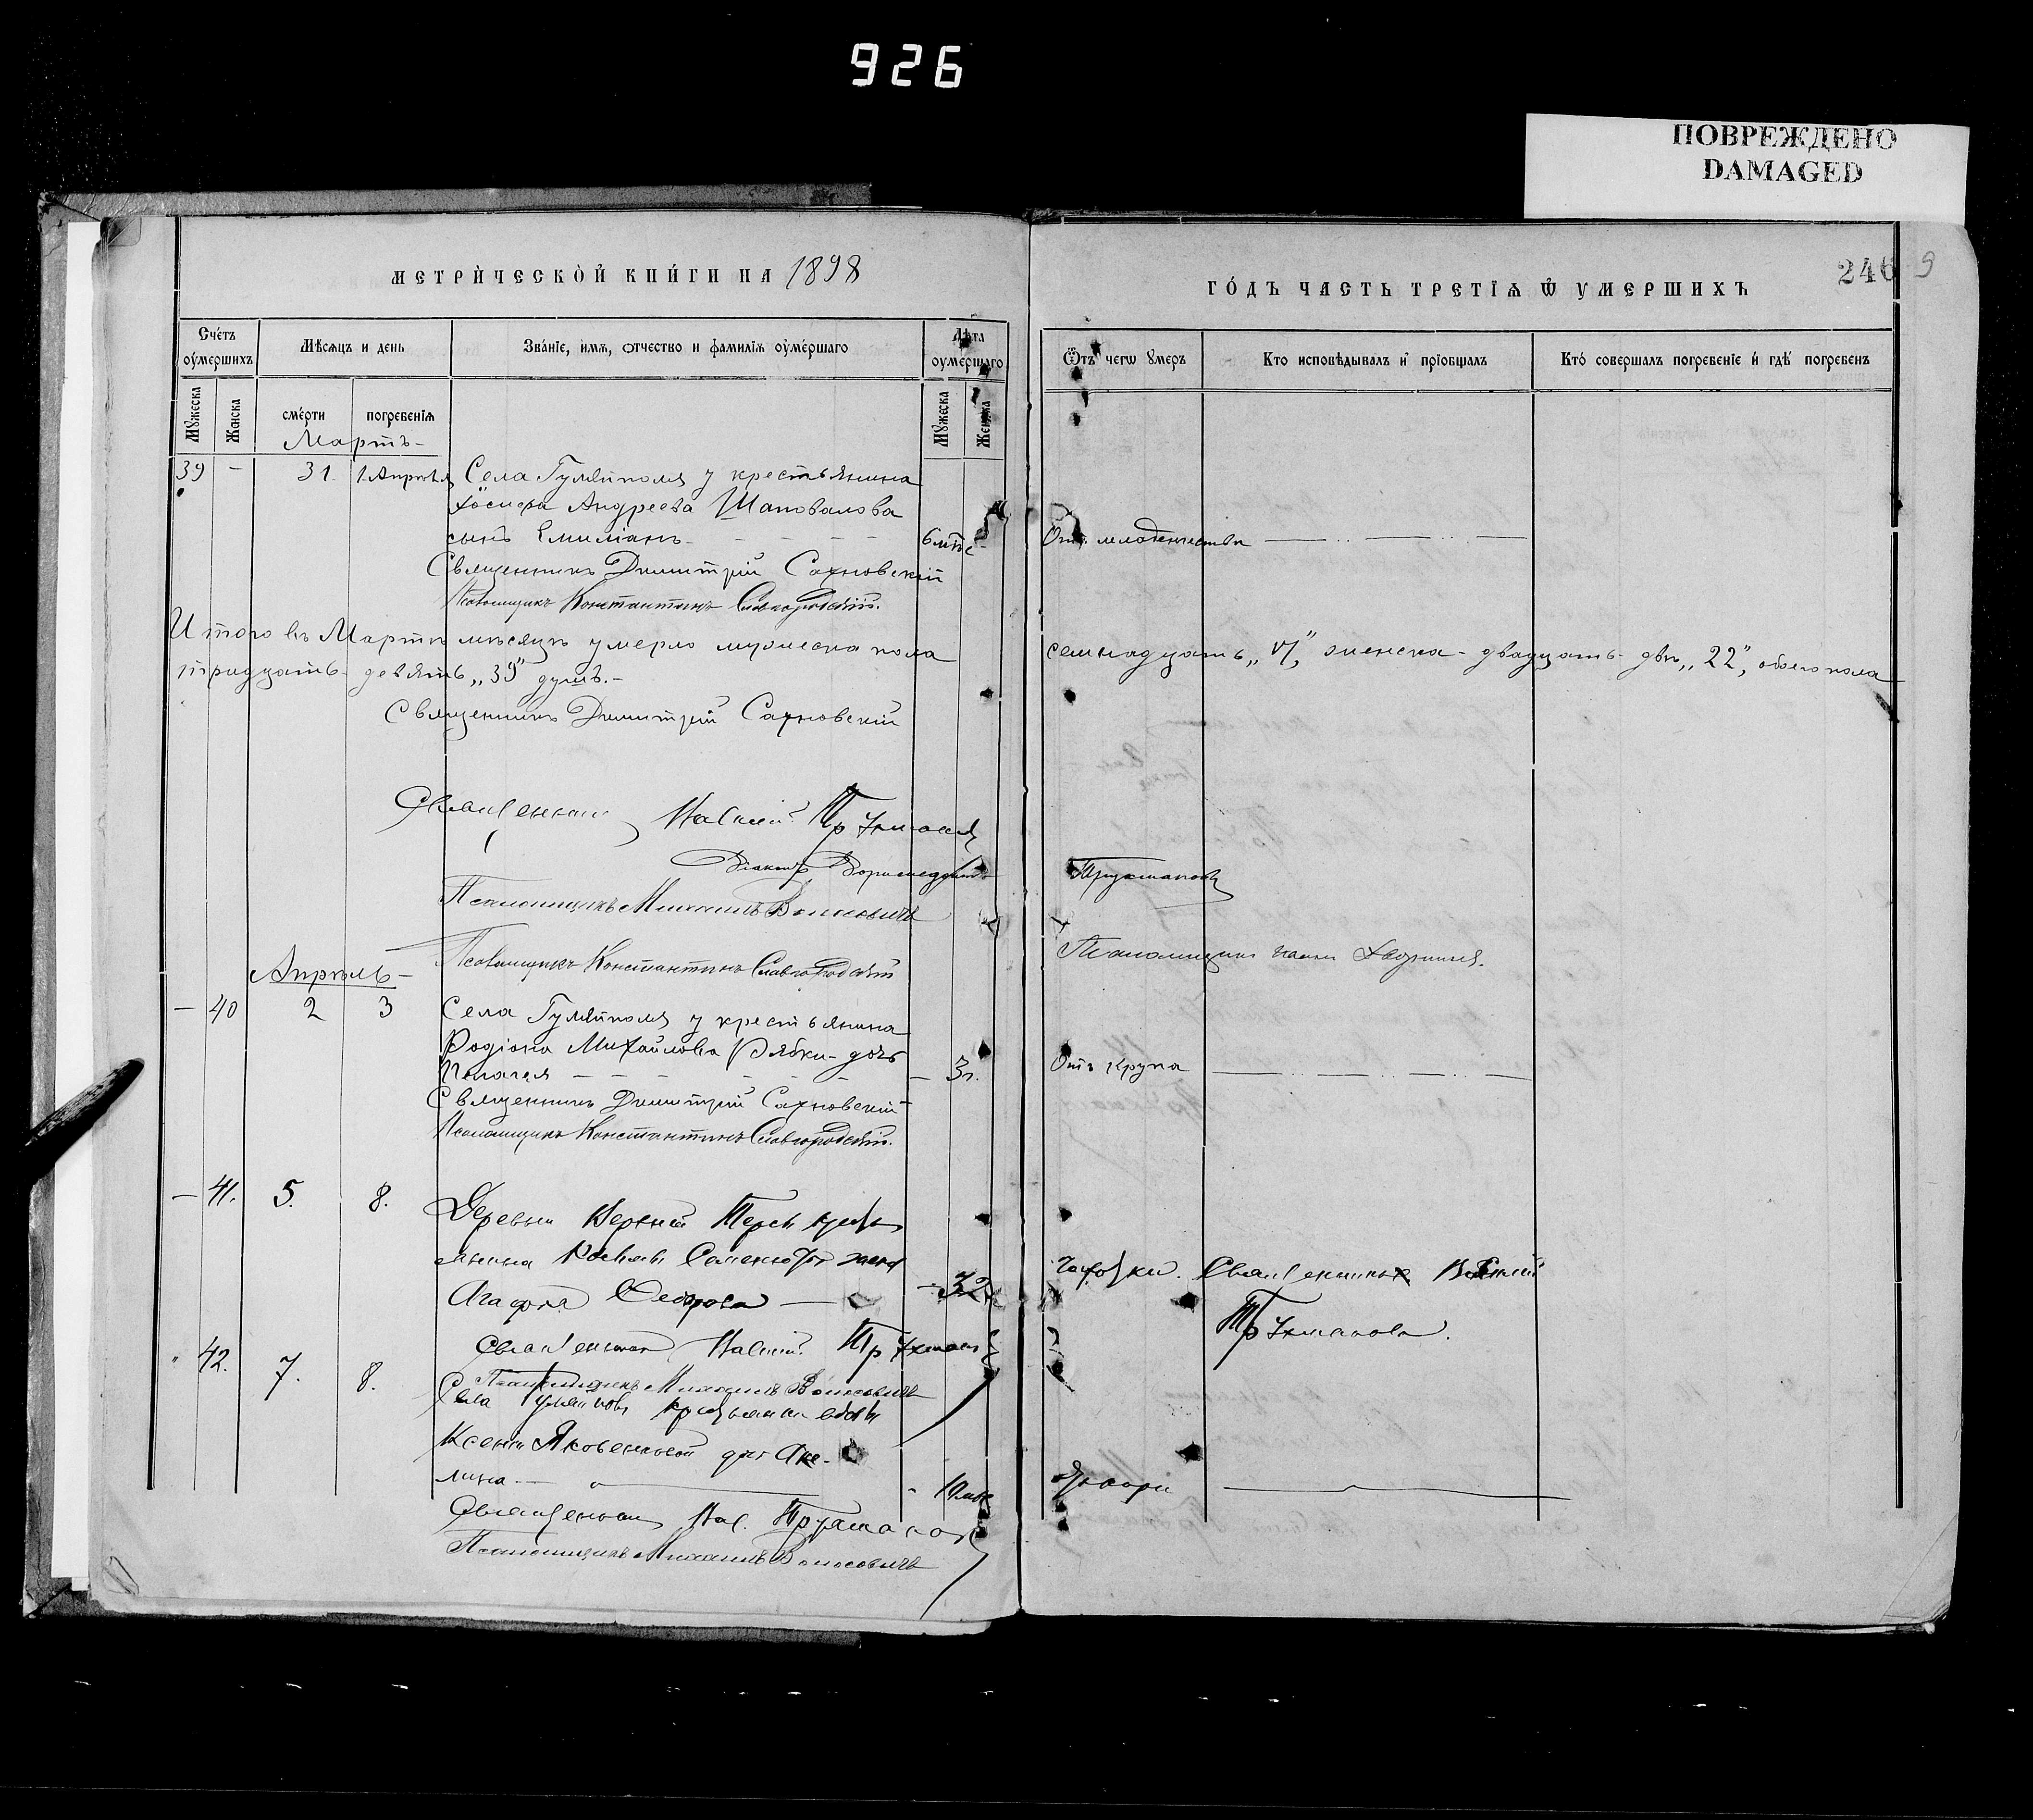 926
ПОВРЕЖДЕНО
DAMAGED
МЕТРИЧЕСКОЙ КНИГИ НА 1898
ГОДЪ ЧАСТЬ ТРЕТІЯ Ѿ УМЕРШИХЪ
246 9
Счетъ оумершихъ
Мѣсяцъ и день
Званіе, имя, отчество и фамилія оумершаго
Лѣта оумершаго
Ѿтъ чегѡ умеръ
Кто исповѣдывалъ и пріобщалъ
Кто совершалъ погребеніе и гдѣ погребенъ
Мужеска
Женска
смерти
погребенія
Мужеска
Женска
Мартъ
39 – 31. 1 Апрѣля Села Гуляйполя у крестьянина
Іосифа Андреева Шаповалова
сынъ Емиліанъ 6 мѣс. Отъ младенчества
Священникъ Димитрій Сахновскій
Псаломщикъ Константинъ Славгородскій.
Итого въ Мартѣ мѣсяцѣ умерло мужеска пола семнадцать „17“, женска двадцать двѣ „22“, обоего пола
тридцать девять „39“ душъ.
Священникъ Димитрій Сахновскій
Священникъ Трухмановъ
Діаконъ Трухмановъ
Псаломщикъ Михаилъ
Псаломщикъ Константинъ Славгородскій
Псаломщикъ
Апрѣль
– 40 2 3 Села Гуляйполя у крестьянина
Родіона Михайлова Рябки дочь
Пелагея – 3 г. Отъ крупа
Священникъ Димитрій Сахновскій
Псаломщикъ Константинъ Славгородскій.
– 41. 5. 8. Деревни Верхній Терсы крест
янина жена
Агафія Федорова – 32 Чахотки. Священникъ Василій
Трухмановъ.
Священникъ Василій Трухмановъ
Псаломщикъ Михаилъ
" 42. 7. 8. Села Гуляйполя крестьянки вдовы
Ксении Яковенковой дочь Аки-
лина
Священникъ Вас. Трухмановъ
Псаломщикъ Михаилъ